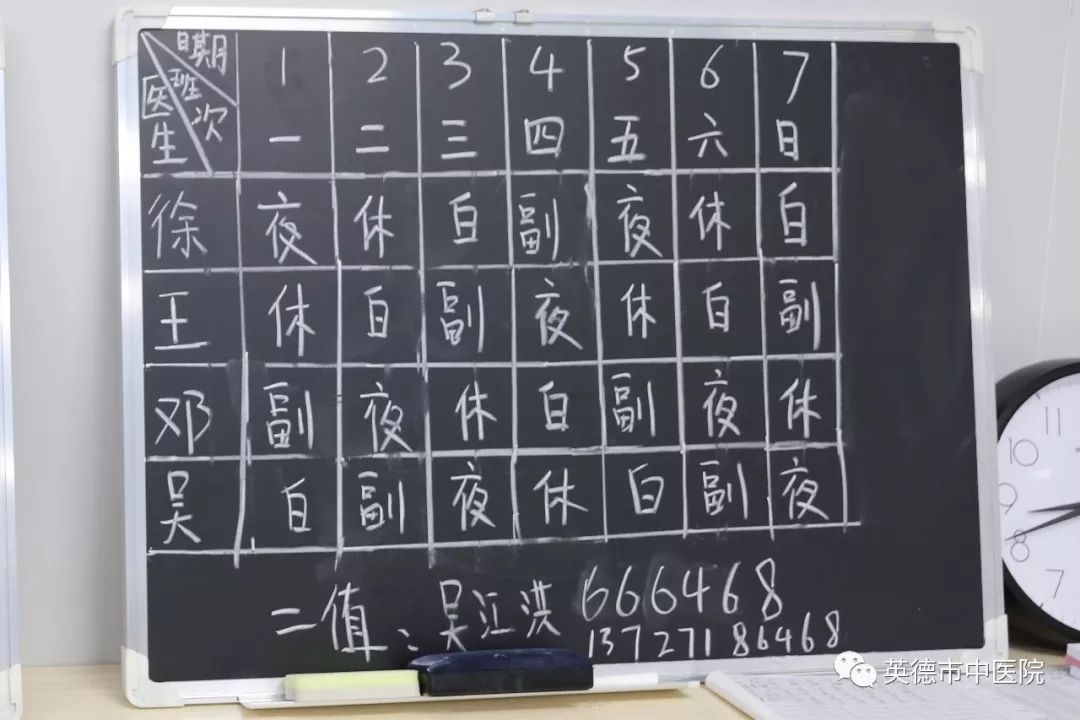 日期 1 2 3 4 5 6 7
班次
医生 一 二 三 四 五 六 日
徐 夜 休 白 副 夜 休 白
王 休 白 副 夜 休 白 副
邓 副 夜 休 白 副 夜 休
吴 白 副 夜 休 白 副 夜
二值：吴江洪 666468
13727186468
11
10
9
8
7
英德市中医院